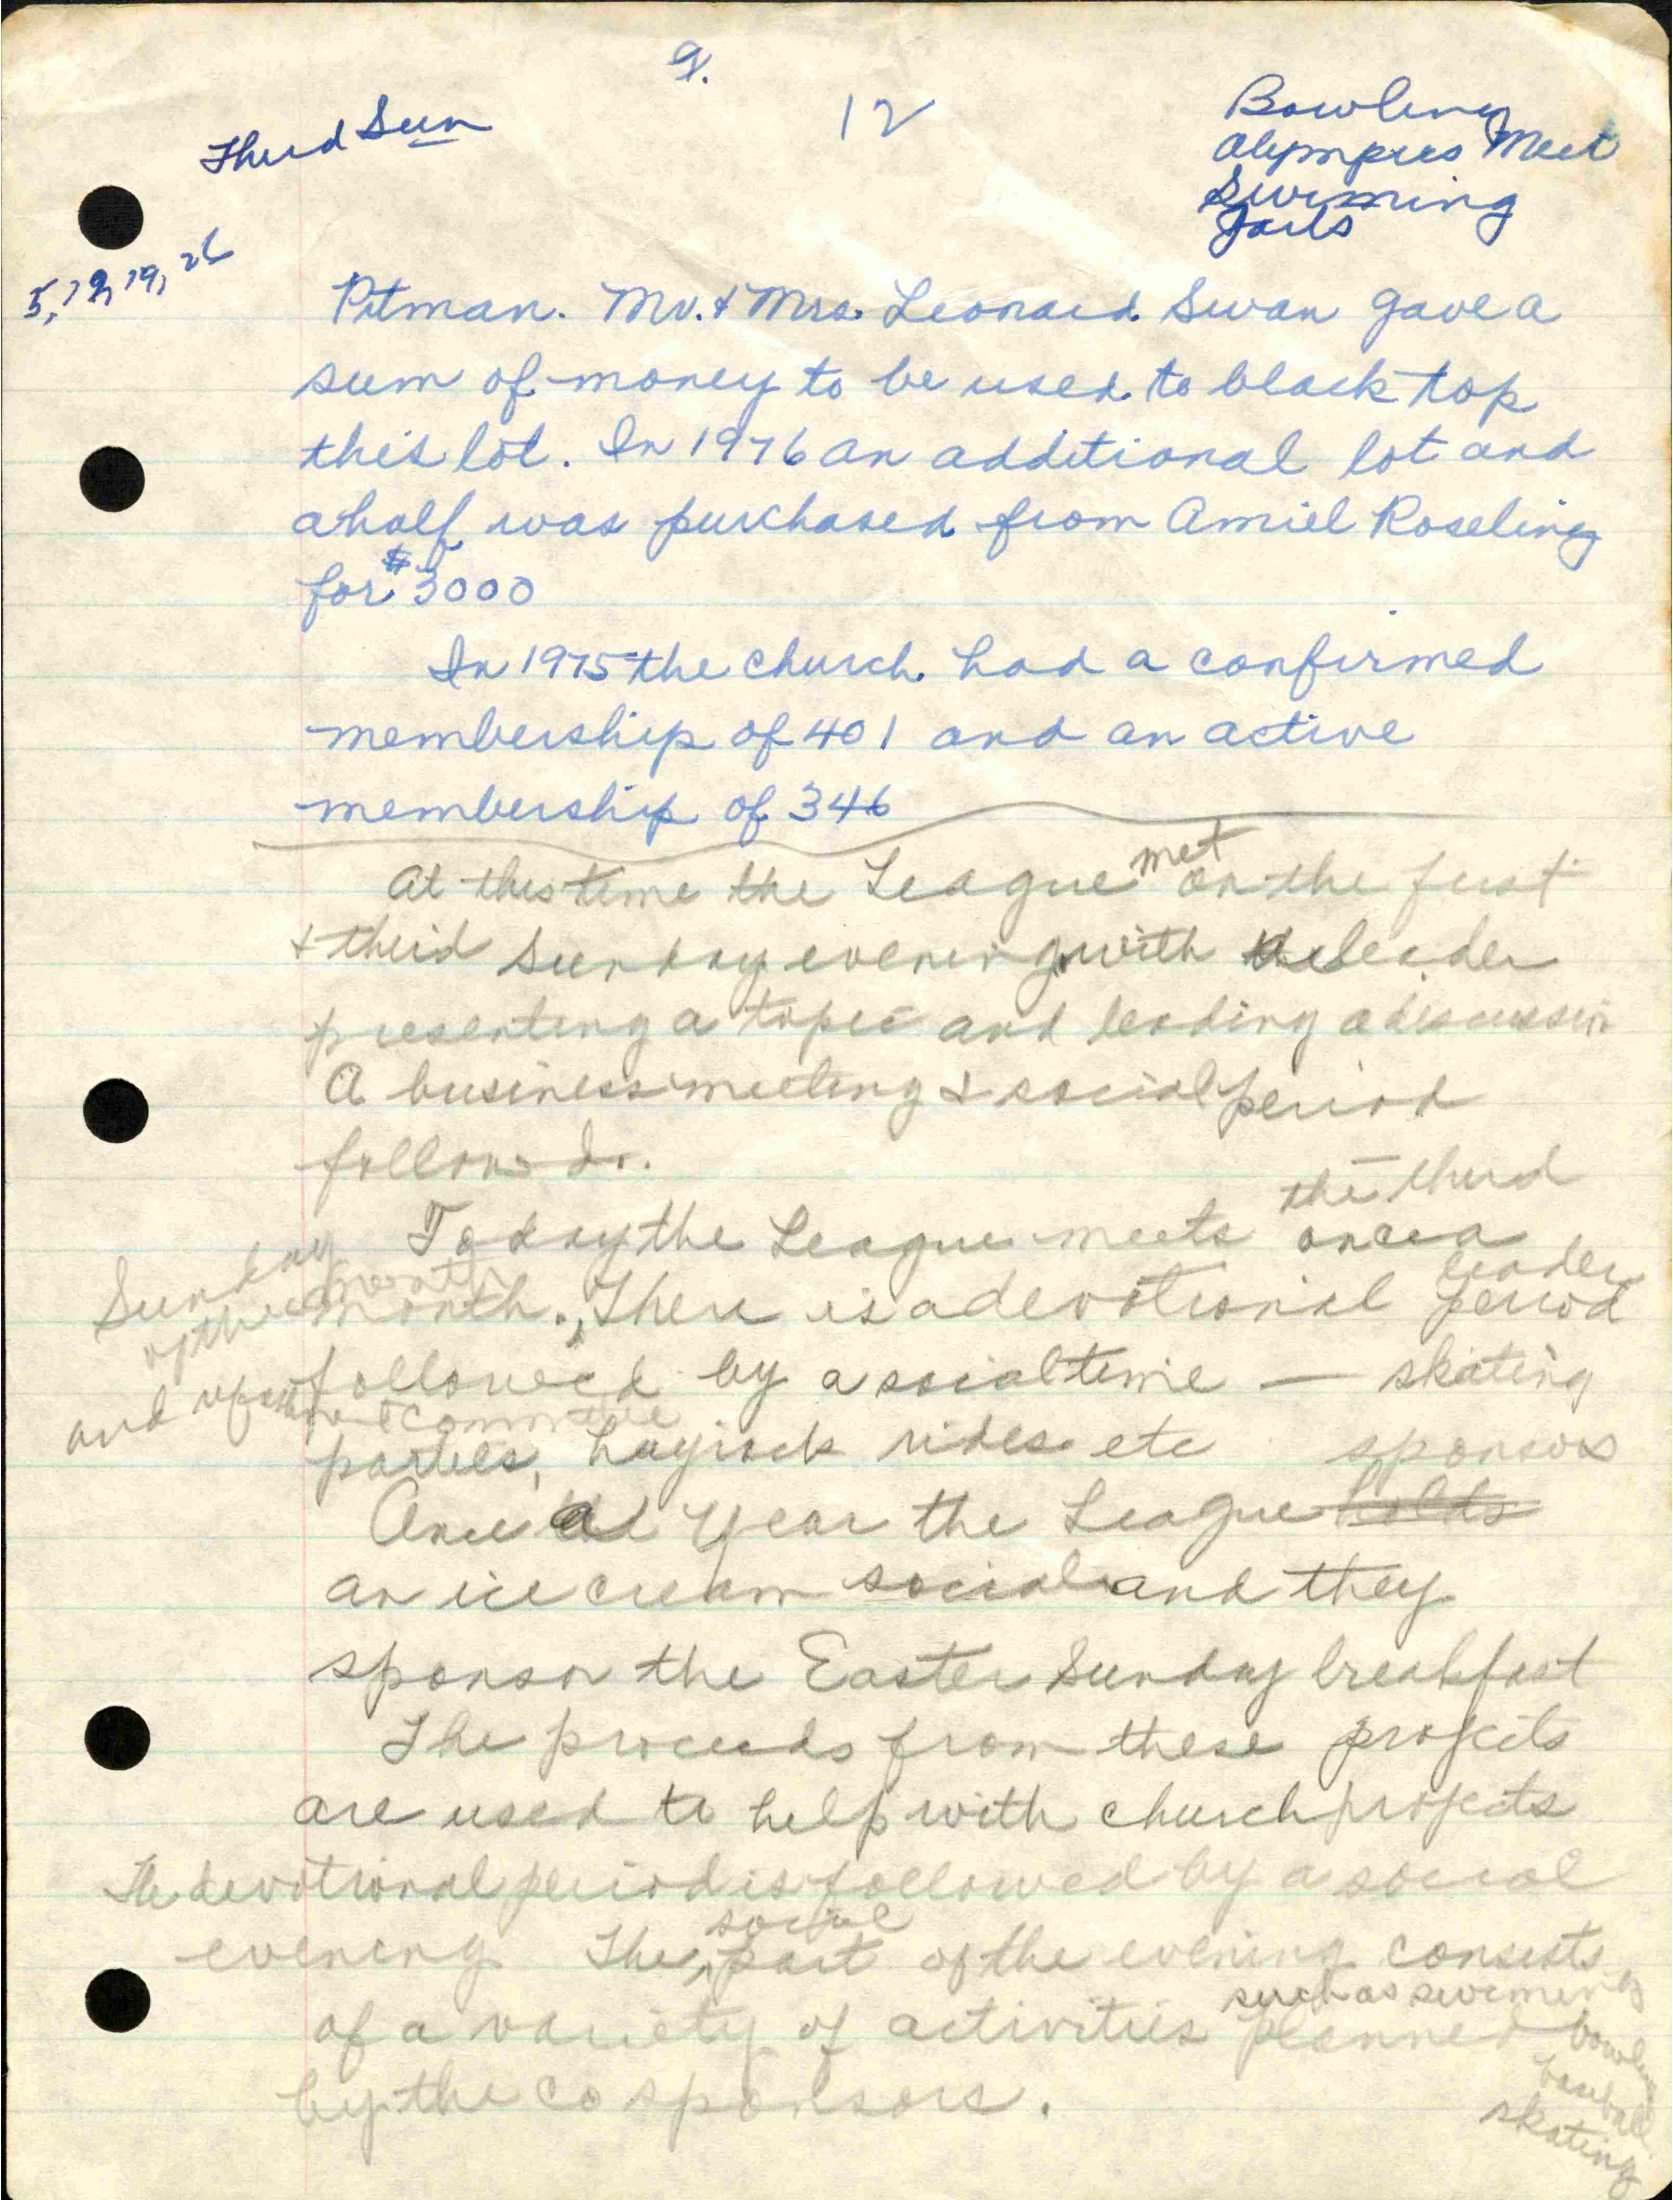 9.
12
Third Sun
Bowling
Olympics Meet
Swimming
5, 12, 19, 26
Pitman. Mr. & Mrs. Leonard Swan gave a
sum of money to be used to black top
this lot. In 1976 an additional lot and
a half was purchased from Amiel Roseling
for $3000
In 1975 the church had a confirmed
membership of 401 and an active
membership of 346
met
At this time the League on the first
& third Sunday evening with leader
presenting a topic and leading a discussion
A business meeting & social period
followed.
the third
Today the League meets once a
Sunday
of the month
leader
month. There is a devotional period
followed by a social time — skating
and committee
parties, hayrack rides etc
sponsors
Once a year the League holds
an ice cream social and they
sponsor the Easter Sunday breakfast
The proceeds from these projects
are used to help with church projects
The devotional period is followed by a social
evening. The part of the evening consists
social
of a variety of activities planned
such as swimming
bowling
baseball
skating
by the co sponsors.